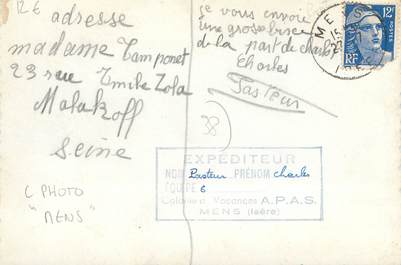 12€
adresse
madame Tamponet
23 rue Emile Zola
Malakoff
Seine
C PHOTO
"MENS"
je vous envoie
une grosse bise
de la part de charles
Charles
Pasteur
38
12F
POSTES
RF
EXPÉDITEUR
NOM Pasteur PRÉNOM charles
ÉQUIPE 6
Colonie de Vacances A.P.A.S.
MENS (Isère)